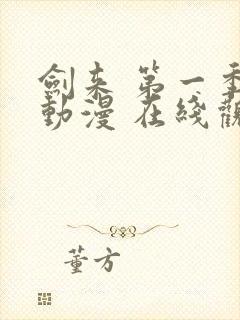 劍来 第一季
動漫 在綫觀
董方